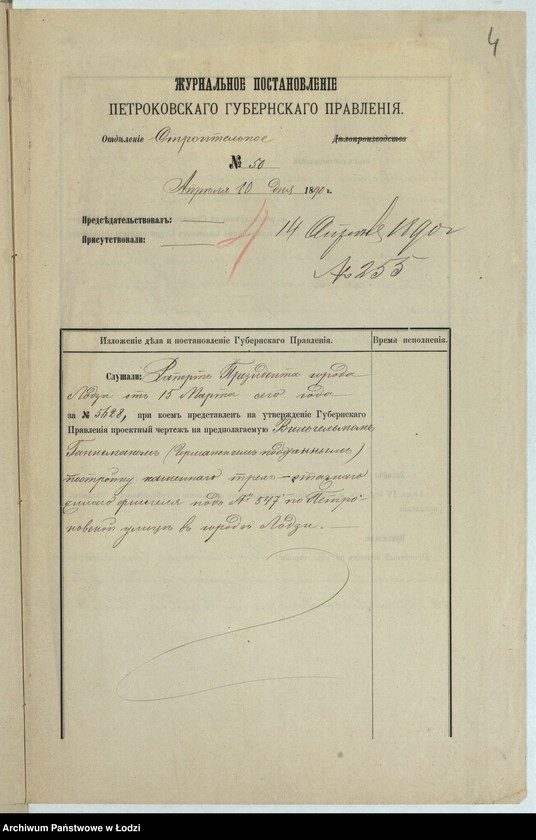 4
ЖУРНАЛЬНОЕ ПОСТАНОВЛЕНІЕ
ПЕТРОКОВСКАГО ГУБЕРНСКАГО ПРАВЛЕНІЯ.
Отдѣленіе Строительное Дѣлопроизводство
№ 50
Апрѣля 10 дня 1890 г.
Предсѣдательствовалъ:
Присутствовали:
14 Апрѣля 1890 г
№ 255
Изложеніе дѣла и постановленіе Губернскаго Правленія.
Время исполненія.
Слушали: Рапортъ Президента города
Лодзи отъ 15 Марта сего года
за № 5628, при коемъ представленъ на утвержденіе Губернскаго
Правленія проектный чертежъ на предполагаемую Вильгельмомъ
(Германскимъ подданнымъ)
постройку каменнаго трехъ-этажнаго
жилаго флигеля подъ № 547 по Петро-
ковской улицѣ въ городѣ Лодзи.
Archiwum Państwowe w Łodzi